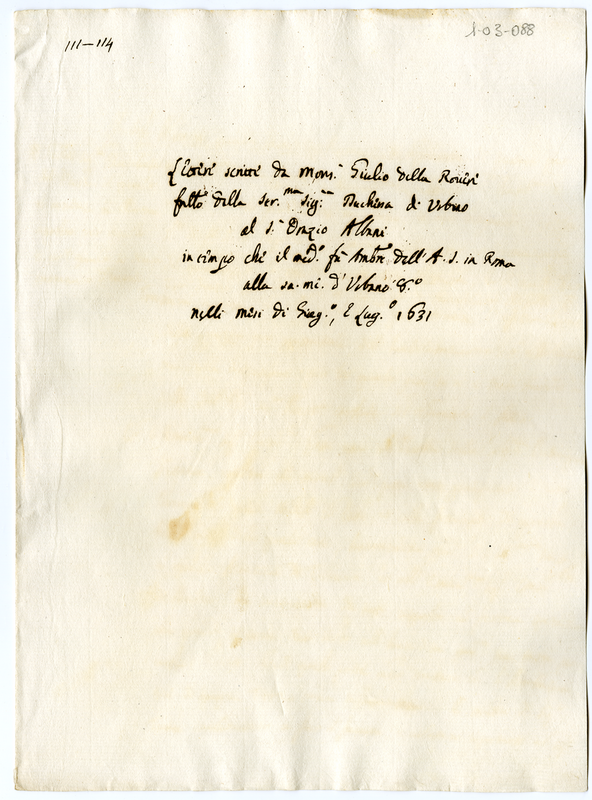 111-114
1-03-088
Lettere scritte da Mons.r Giulio della Rovere
della Ser.ma Sig.ra Duchessa di Urbino
al S.r Orazio Albani
in tempo che il med.o fù Amb.re dell'A. S. in Roma
alla sa. mi. d'Urbano 8.o
nelli mesi di Giug.o, e Lug.o 1631